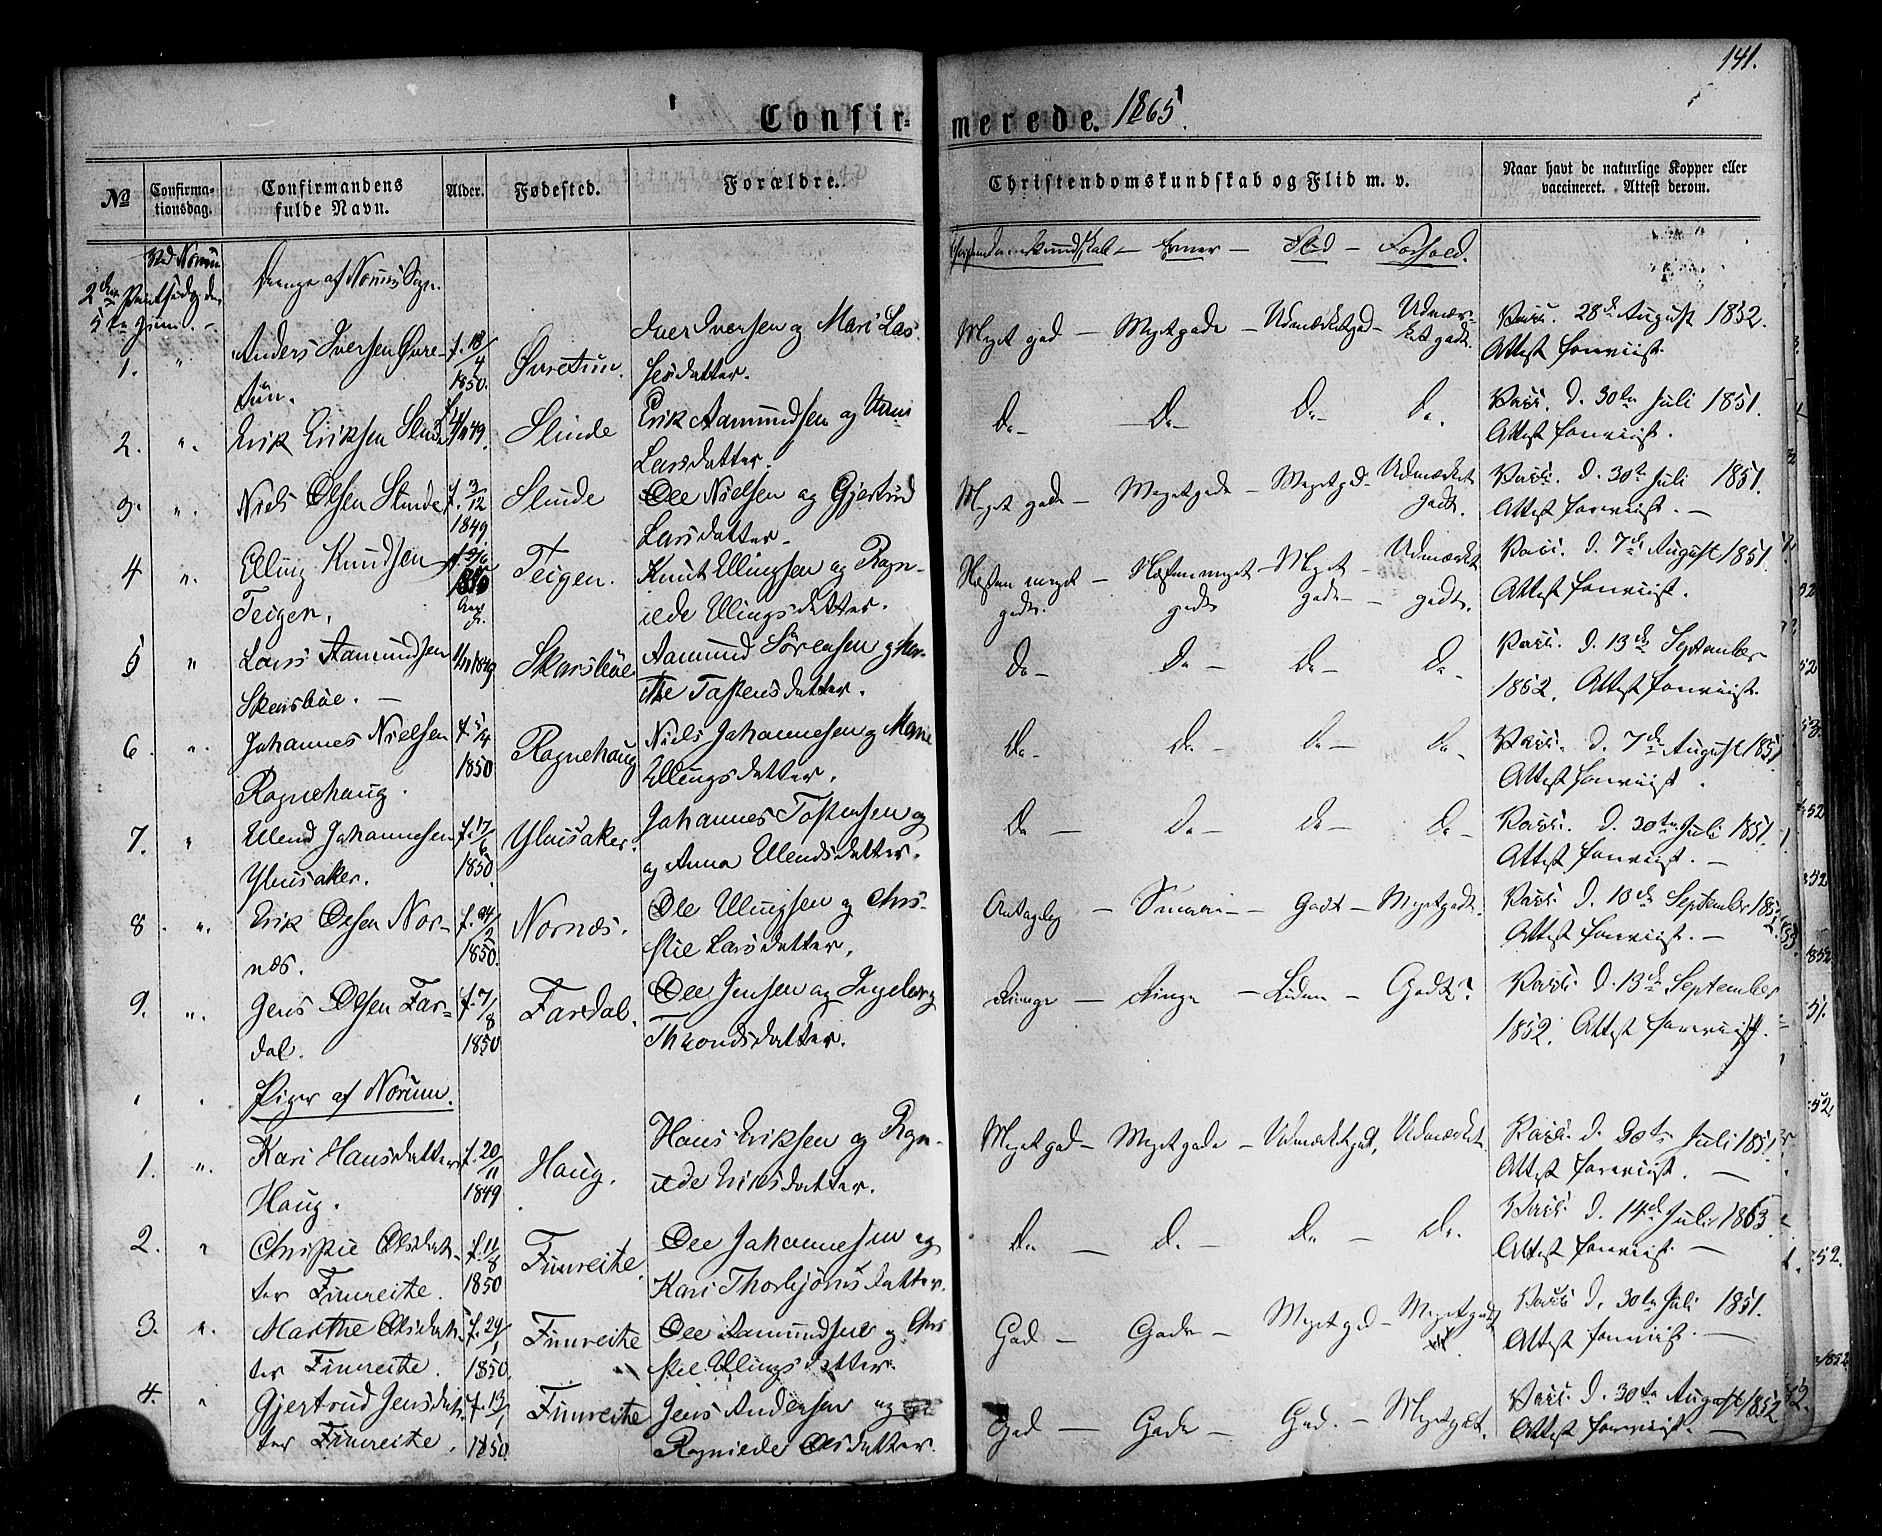 141.
Confirmerede. 1865.
No
Confirmationsdag.
Confirmandens fulde Navn.
Alder.
Fødested.
Forældre.
Christendomskundskab og Flid m. v.
Naar havt de naturlige Kopper eller vaccineret. Attest derom.
Ved Norum
2den Pintsedag den
5te Juni.
Drenge af Norums Sogn.
Christendomskundskab — Evner — Flid — Forhold.
1. " Anders Iversen Øvretun. f. 18/4 1850. Øvretun. Iver Iversen og Mari Lassesdatter. Meget god — Meget gode — Udmærket god — Udmærket godt. Vacc. 28de August 1852. Attest foreviist.
2. " Erik Eriksen Slinde Slinde Erik Aamundsen og Larsdatter. Do — Do — Do — Do. Vacc. d. 30te Juli 1851. Attest foreviist.
3. " Niels Olsen Slinde f. 3/12 1849. Slinde Ole Nielsen og Gjertrud Larsdatter. Meget gode — Meget gode — Meget god — Udmærket godt. Vacc. d. 30te Juli 1851. Attest foreviist. —
4 " Elling Knudsen Teigen. Teigen. Knut Ellingsen og Ragnilde Ellingsdatter. Næsten meget gode. — Næsten meget gode — Meget gode — Udmærket godt. Vacc. d. 7de August 1851. Attest foreviist.
5 " Lars Aamundsen Skarsbøe. — 1849 Skarsbøe Aamund Sørensen og Marithe Tostensdatter. Do — Do — Do — Do. Vacc. d. 13de September 1852. Attest foreviist.
6. " Johannes Nielsen Ragnehaug. f. 5/4 1850 Ragnehaug Niels Johannesen og Marie Ellingsdatter. Do — Do — Do — Do. Vacc. d. 7de August 1851 Attest foreviist.
7. " Ellend Johannesen Ylvisaker. f. 17/6 1850. Ylvisaker. Johannes Tostensen og og Anna Ellendsdatter. Do — Do — Do — Do. Vacc. d. 30te Juli 1851. Attest foreviist. —
8. " Erik Olsen Nornæs. f. 24/2 1850. Nornæs. Ole Ellingsen og Christie Larsdatter. Antagelig — — Godt — Meget godt. Vacc. d. 13de September 1852. Attest foreviist. —
9. " Jens Olsen Fardal. f. 7/8 1850 Fardal. Ole Jensen og Ingeborg Throndsdatter. Ringe — Ringe — Liden — Godt? Vacc. d. 13de September 1852. Attest foreviist.
Piger af Norum.
1. " Kari Hansdatter Haug. f. 20/11 1849 Haug. Hans Eriksen og Ragnilde Eriksdatter. Meget god — Meget gode — Udmærket god, Udmærket. Vacc. d. 30te Juli 1851 Attest foreviist. —
2. " Christie Olsdatter Fimreite. f. 11/8 1850 Fimreite. Ole Johannesen og Kari Thorbjørnsdatter. Do — Do — Do — Do. Vacc. d. 14de Juli 1863 Attest foreviist. —
3. " Marthe Olsdatter Fimreite. f. 29/1 1850. Fimreite Ole Aamundsen og Christie Ellingsdatter. God — Gode — Meget god — Meget godt Vacc. d. 30te Juli 1851. Attest foreviist. —
4. " Gjertrud Jensdatter Fimreite. f. 13/1 1850. Fimreite Jens Andersen og Ragnilde Olsdatter. God — Gode — God. — Meget godt. Vacc. d. 30te August 1852 Attest foreviist. —